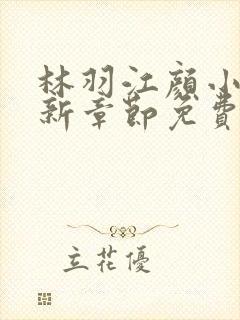 林羽江顏小
新章節免費
立花優